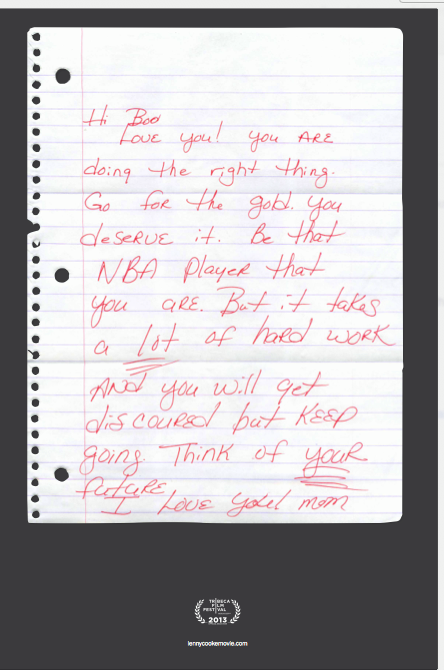 Hi Boo
Love you! you ARE
doing the right thing.
Go for the gold. you
deserve it. Be that
NBA Player that
you are. But it takes
a lot of hard work
And you will get
discoured but KEEP
going. Think of your
future
I Love you! mom
TRIBECA
FILM
FESTIVAL
2013
lennycookemovie.com